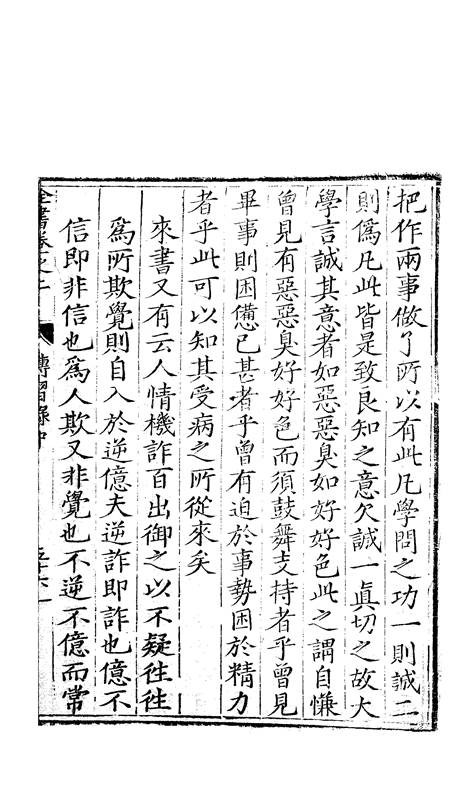 把作兩事做了所以有此凡學問之功一則誠二
則僞凡此皆是致良知之意欠誠一眞切之故大
學言誠其意者如惡惡臭如好好色此之謂自慊
曾見有惡惡臭好好色而須鼓舞支持者乎曾見
畢事則困憊已甚者乎曾有迫於事勢困於精力
者乎此可以知其受病之所從來矣
來書又有云人情機詐百出御之以不疑徃徃
爲所欺覺則自入於逆億夫逆詐即詐也億不
信即非信也爲人欺又非覺也不逆不億而常
全書卷之二
傳習錄中